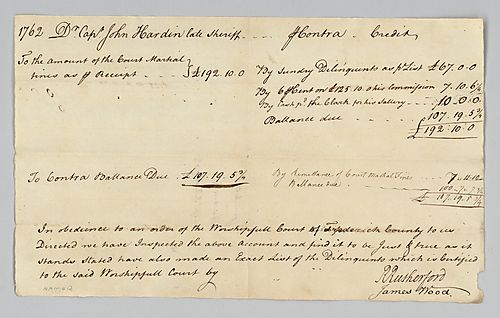 1762 Dr. Capt. John Hardin late Sheriff - - - - ⅌ Contra - Credit
To the Amount of the Court Martial
fines as ⅌ Receipt - - - - - } £192.10.0
By Sundry Delinquents as pr. List £67.0.0
By 6 ⅌ Cent on £125.10.0 his Commission 7.10.6½
By Cash pd. the Clark for his Sallery - - - 10.0.0
Ballance due - - - - - 107.19.5¾
£192.10.0
To Contra Ballance Due - £107.19.5¾
By Remittance of Court Martial Fines - - 7.11.
Ballance due - - - - - 100.7.
£107.19.5¾
In obedience to an order of the Worshipfull Court of Frederick County to us
Directed we have Inspected the above Account and find it to be Just & true as it
Stands Stated have also made an Exact List of the Delinquents which is Certified
to the Said Worshipfull Court by
R Rutherford
James Wood